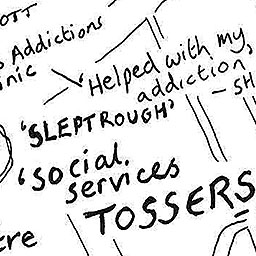 OTT
Addictions
nic
'Helped with my
addiction,
- SH
'SLEPTROUGH'
'social.
services
TOSSERS
tre